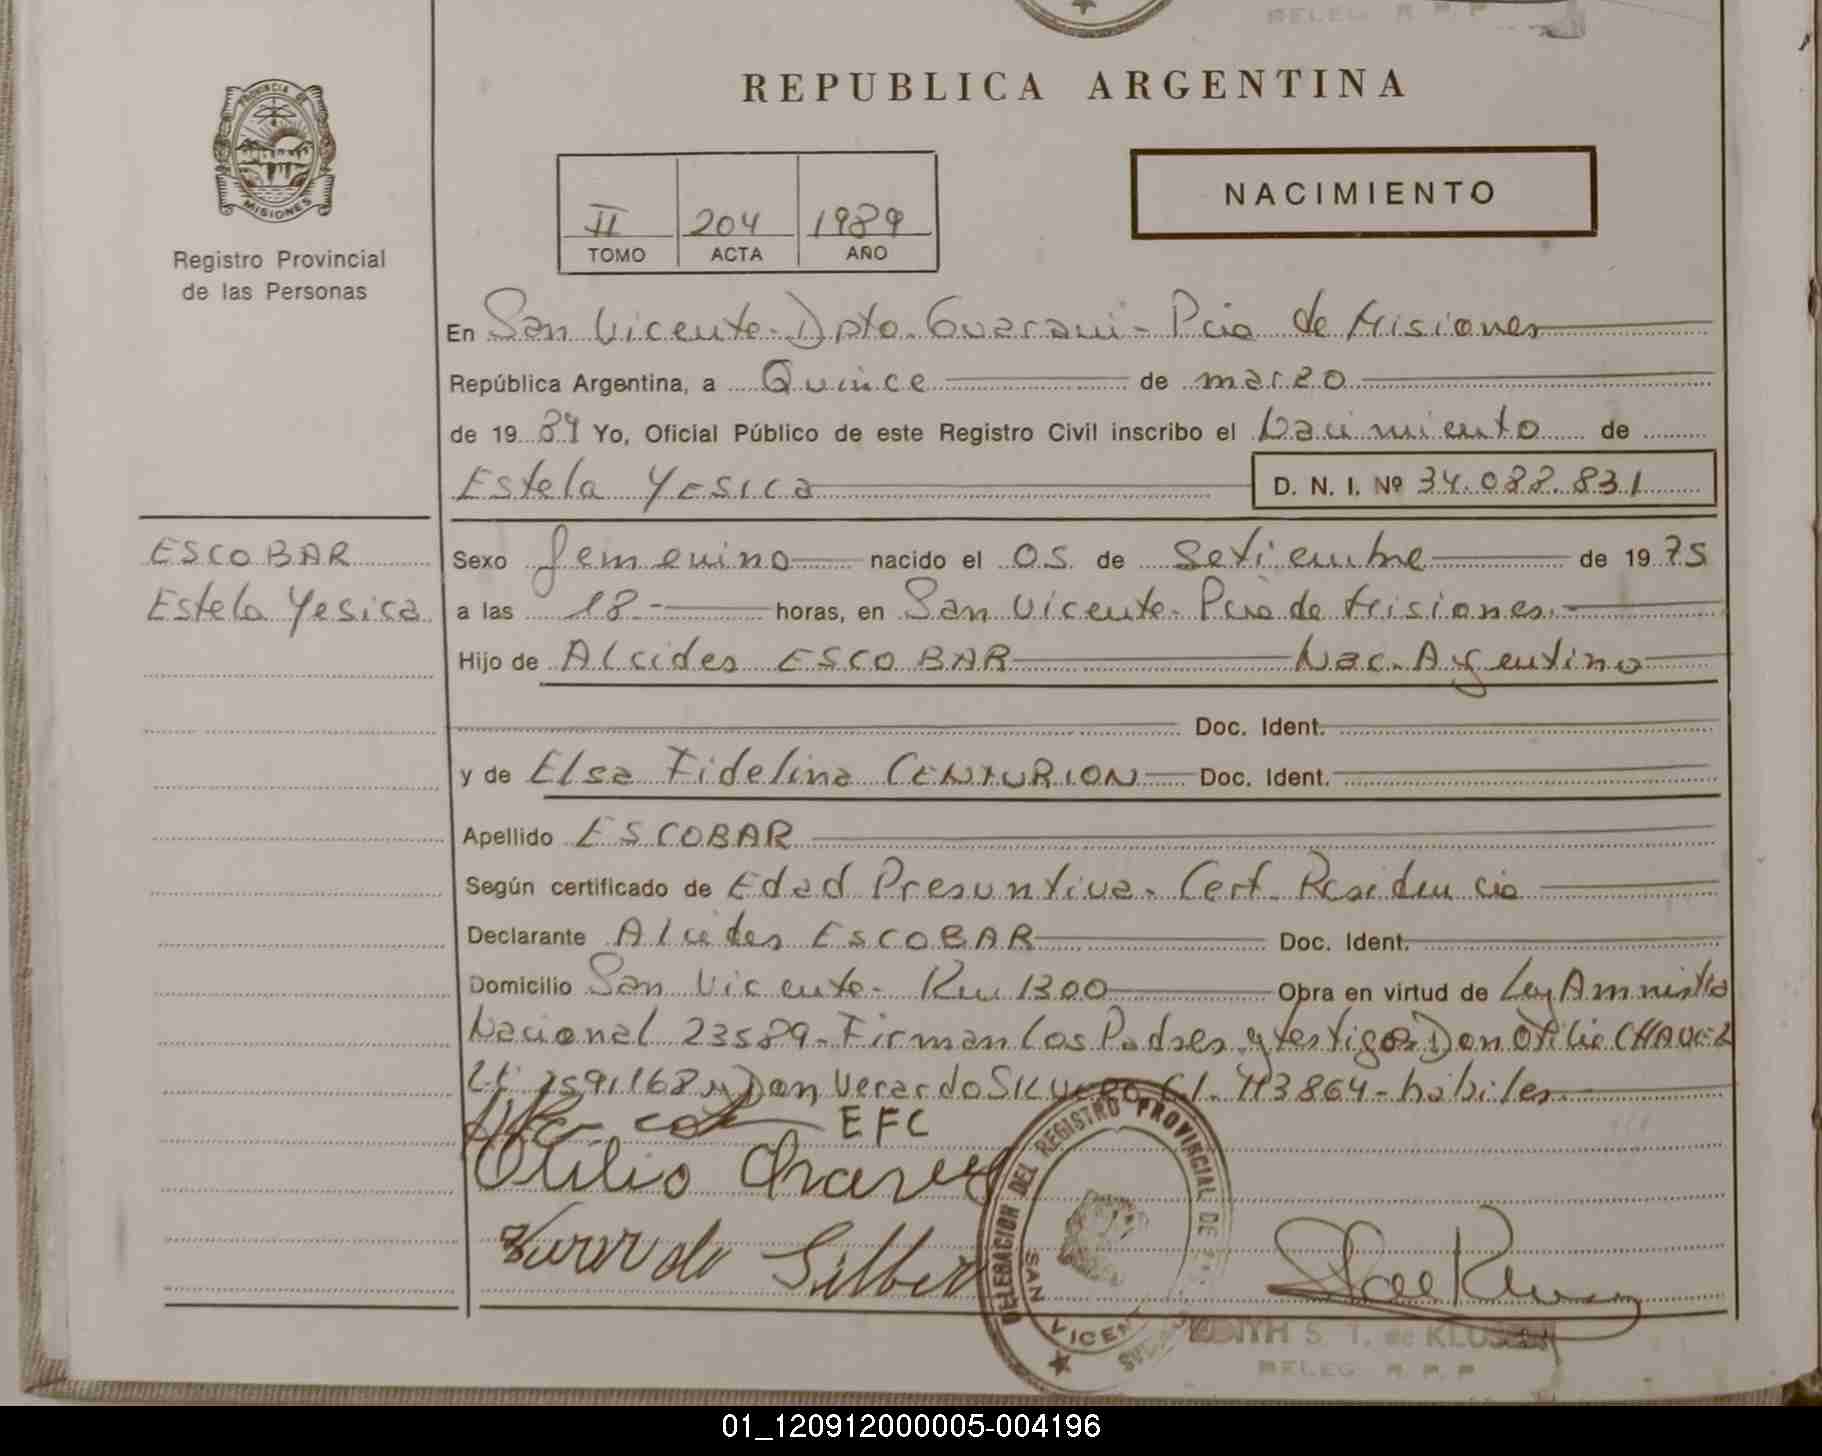 DELEG. R. P. P.
REPUBLICA ARGENTINA
PROVINCIA DE
MISIONES
Registro Provincial
de las Personas
NACIMIENTO
II 204 1989
TOMO ACTA AÑO
En San Vicente - Dpto. Guarani - Pcia de Misiones
República Argentina, a Quince de marzo
de 1989 Yo, Oficial Público de este Registro Civil inscribo el Nacimiento de
Estela Yesica D. N. I. Nº 34.088.831
ESCOBAR
Estela Yesica
Sexo femenino nacido el 05 de Setiembre de 1975
a las 18 - horas, en San Vicente - Pcia de Misiones.
Hijo de Alcides ESCOBAR Nac. Argentino
Doc. Ident.
y de Elsa Fidelina CENTURION Doc. Ident.
Apellido ESCOBAR
Según certificado de Edad Presuntiva - Cert. Residencia
Declarante Alcides ESCOBAR Doc. Ident.
Domicilio San Vicente - Km 1300 Obra en virtud de Ley Amnistia
Nacional 23589 - Firman los Padres y testigos Don Otilio CHAVEZ
y Don Verardo C.I. 113864 - hábiles
EFC
Otilio Chavez
DELEGACION DEL REGISTRO PROVINCIAL DE
SAN VICENTE
S. T. de
DELEG. R. P. P.
01_120912000005-004196